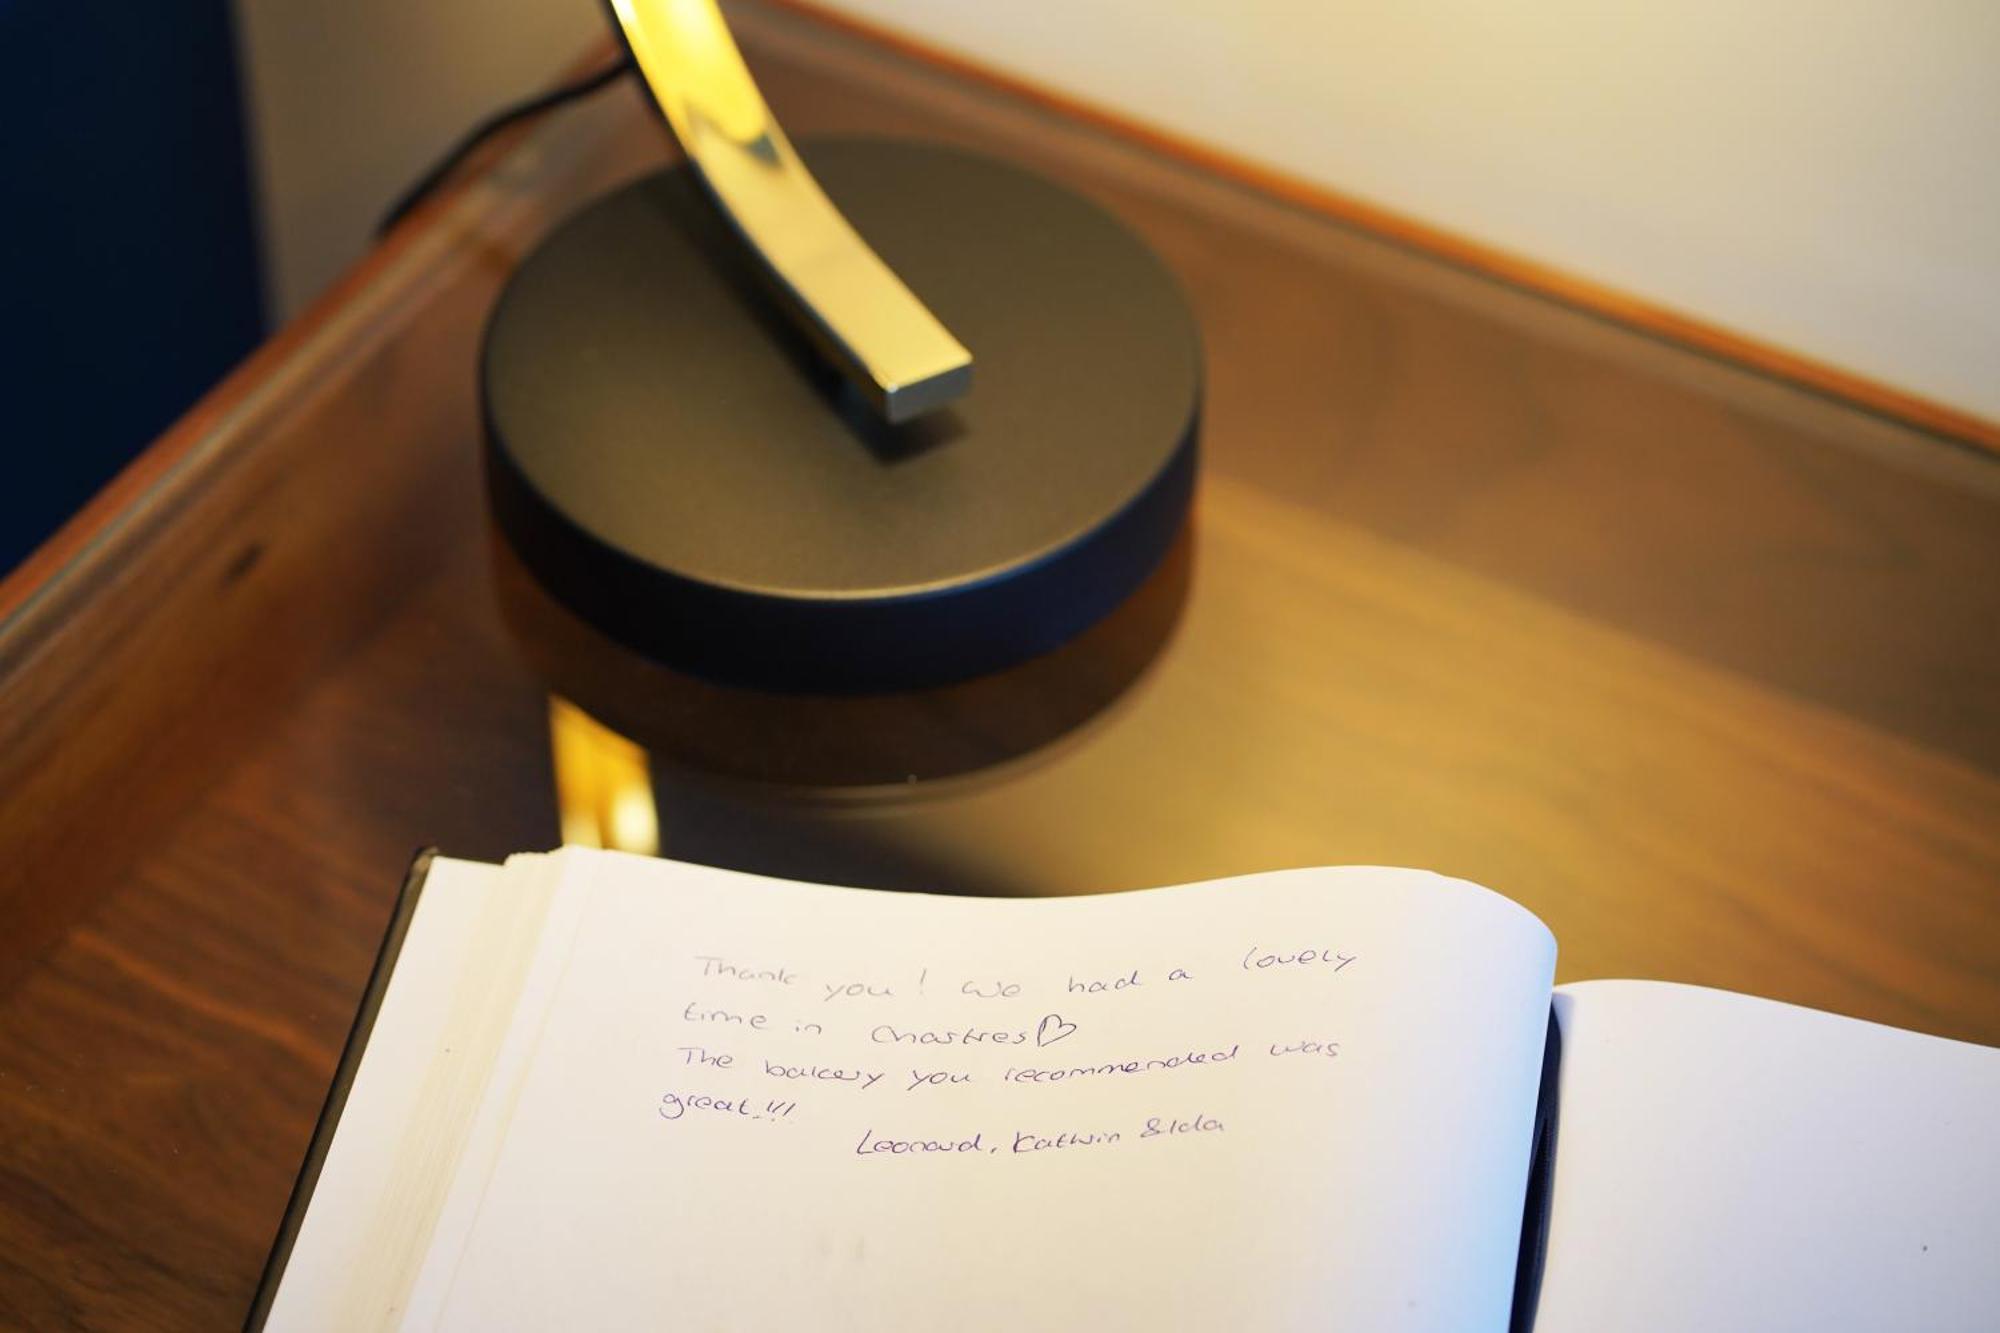 Thank you! We had a lovely
time in Chastres♡
The bakery you recommended was
great!!!
Leonard, Kathrin & Ida